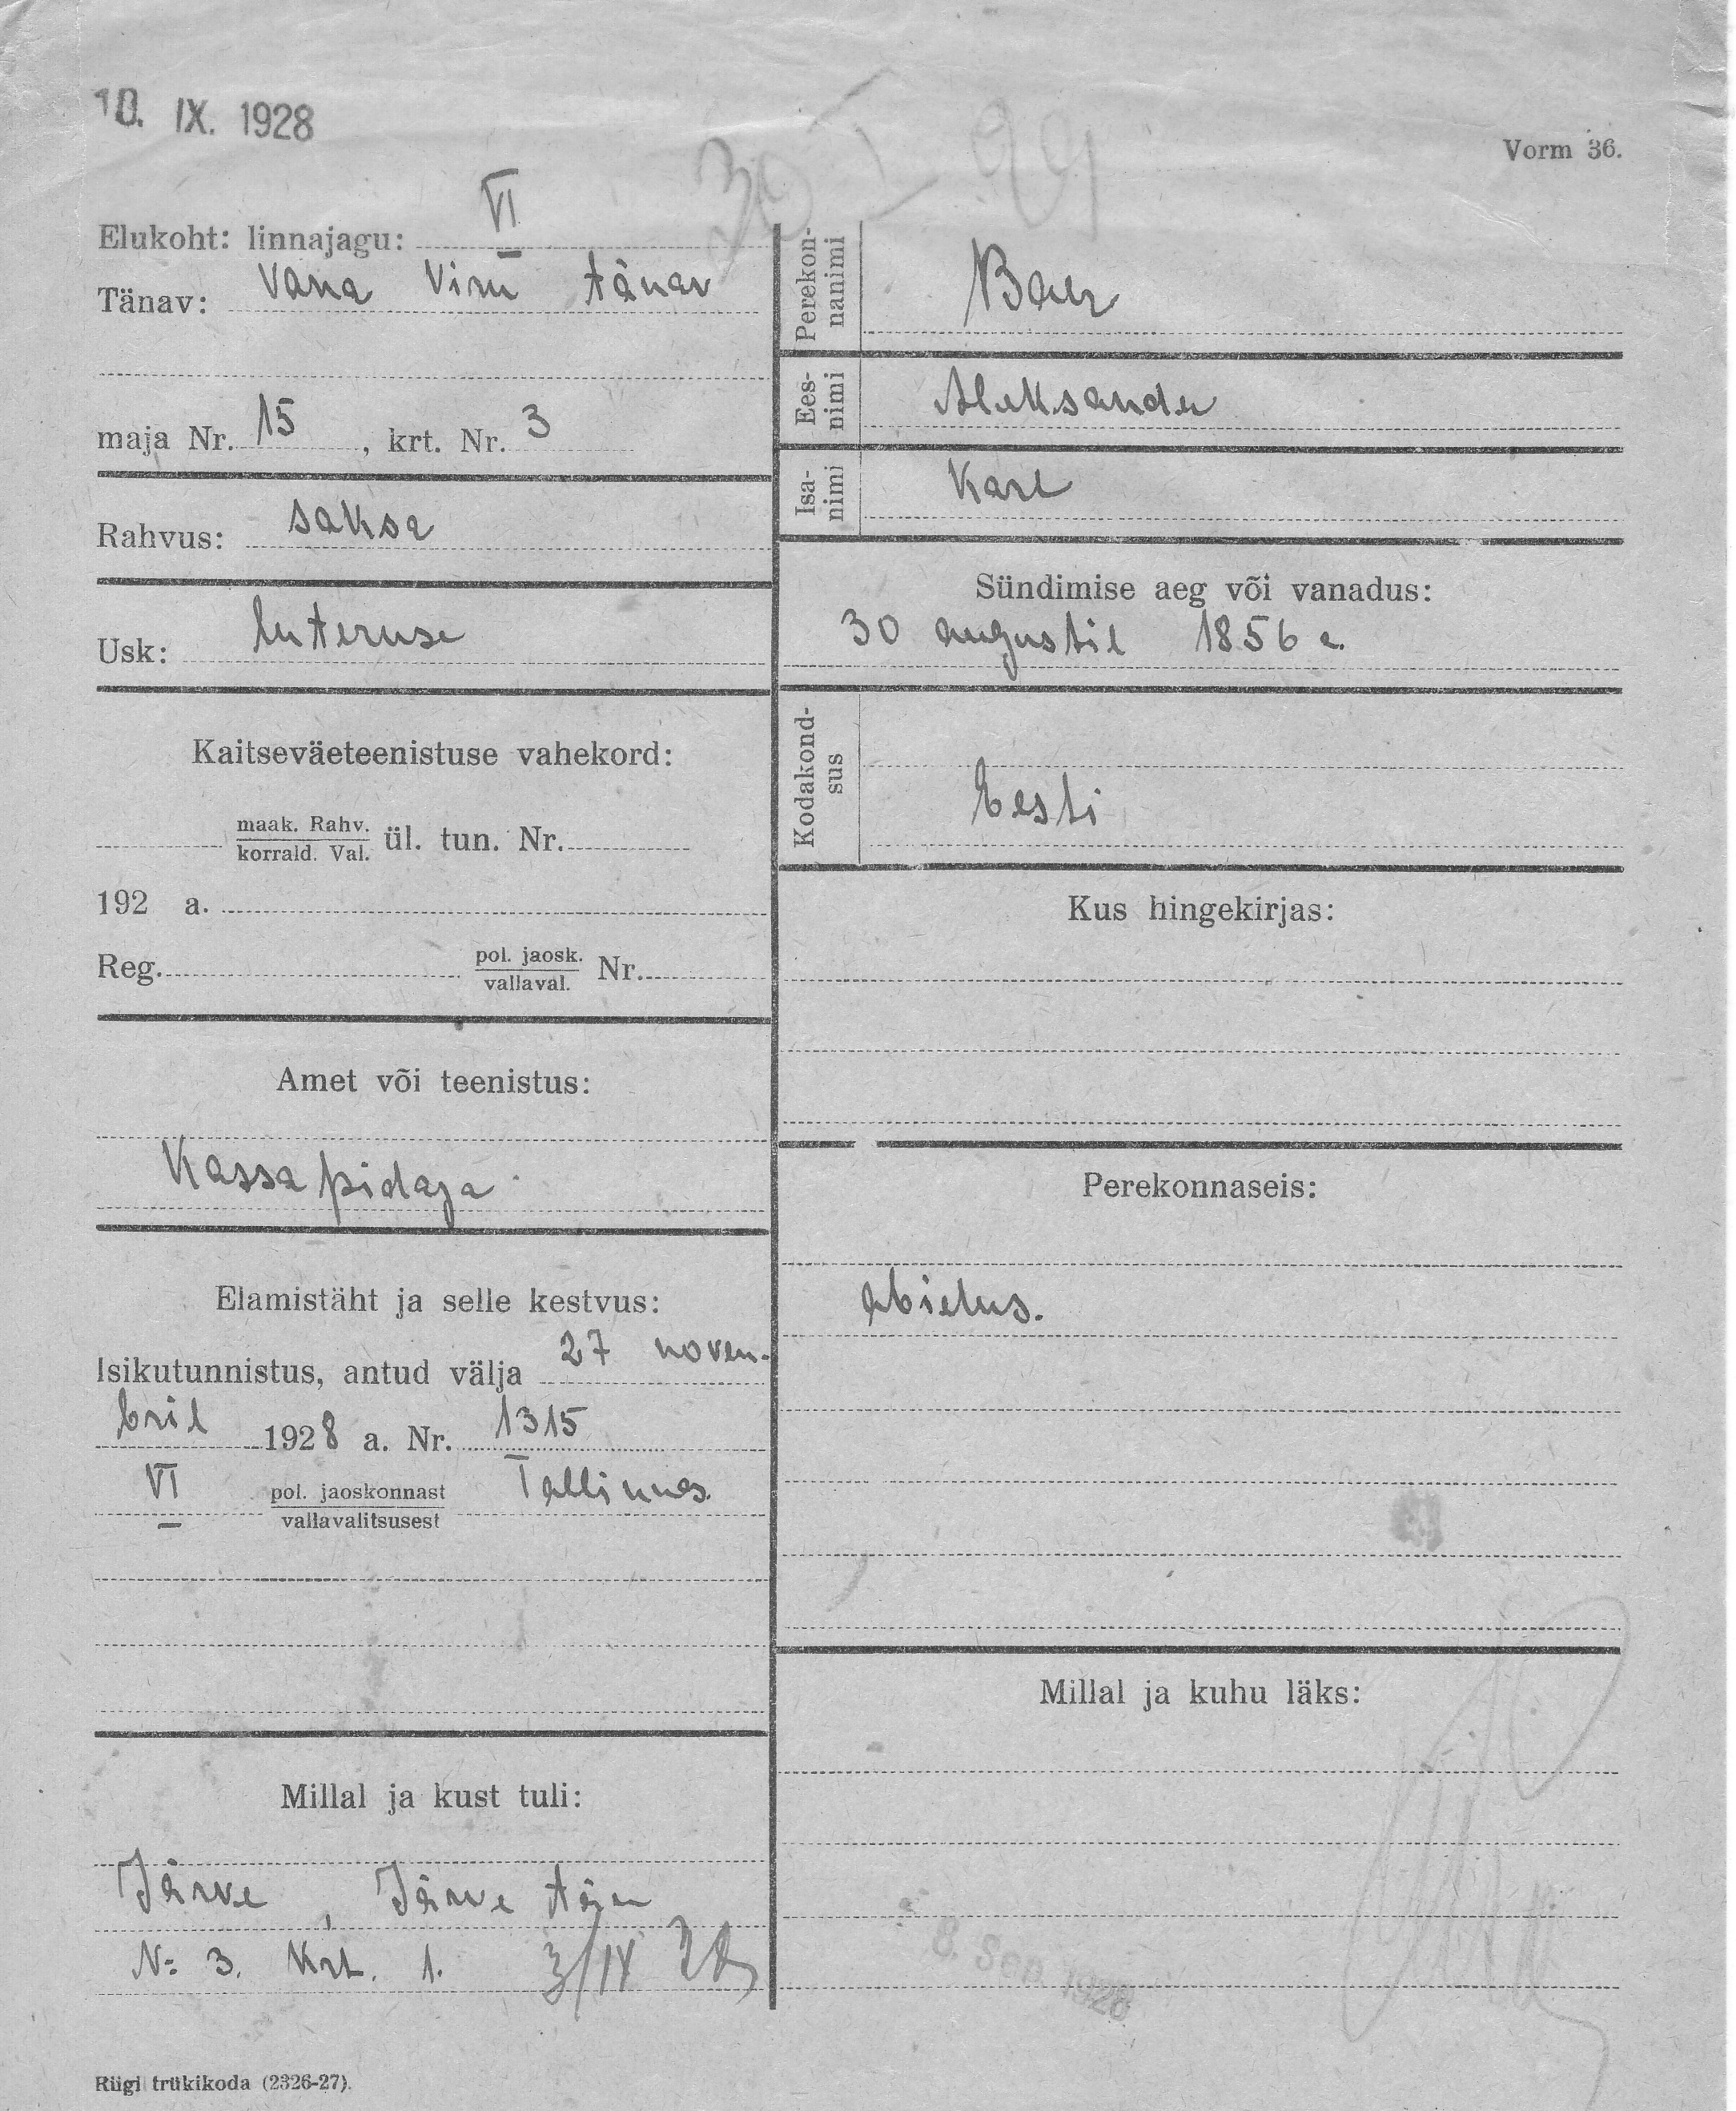 10. IX. 1928
Vorm 36.
Elukoht: linnajagu: VI
Tänav: Vana Viru tänav
maja Nr. 15, krt. Nr. 3
Rahvus: saksa
Usk: luteruse
Kaitseväeteenistuse vahekord:
maak. Rahv.
korrald. Val.
ül. tun. Nr.
192 a.
Reg. pol. jaosk.
vallaval. Nr.
Amet või teenistus:
Kassapidaja
Elamistäht ja selle kestvus:
Isikutunnistus, antud välja 27 novem-
bril 1928 a. Nr. 1315
VI pol. jaoskonnast
vallavalitsusest Tallinnas.
Millal ja kust tuli:
Järve, Järve tän
№ 3. Krt. 1. 3/IX 28
Riigi trükikoda (2326-27).
Perekon-
nanimi
Baer
Ees-
nimi
Aleksander
Isa-
nimi
Karl
Sündimise aeg või vanadus:
30 augustil 1856 a.
Kodakond-
sus
Eesti
Kus hingekirjas:
Perekonnaseis:
abielus.
Millal ja kuhu läks:
8. Sep. 1928